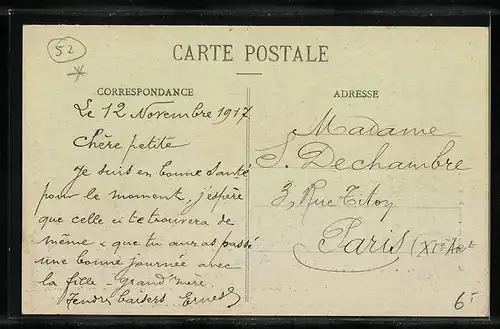 52
CARTE POSTALE
CORRESPONDANCE
Le 12 Novembre 1917
Chère petite
Je suis en bonne santé
pour le moment, j'espère
que celle ci te trouvera de
même & que tu auras passé
une bonne journée avec
la fille - grand'mère
Tendres baisers Ernest
ADRESSE
Madame
S. Dechambre
3, Rue Titon
Paris (XIe Ar
6